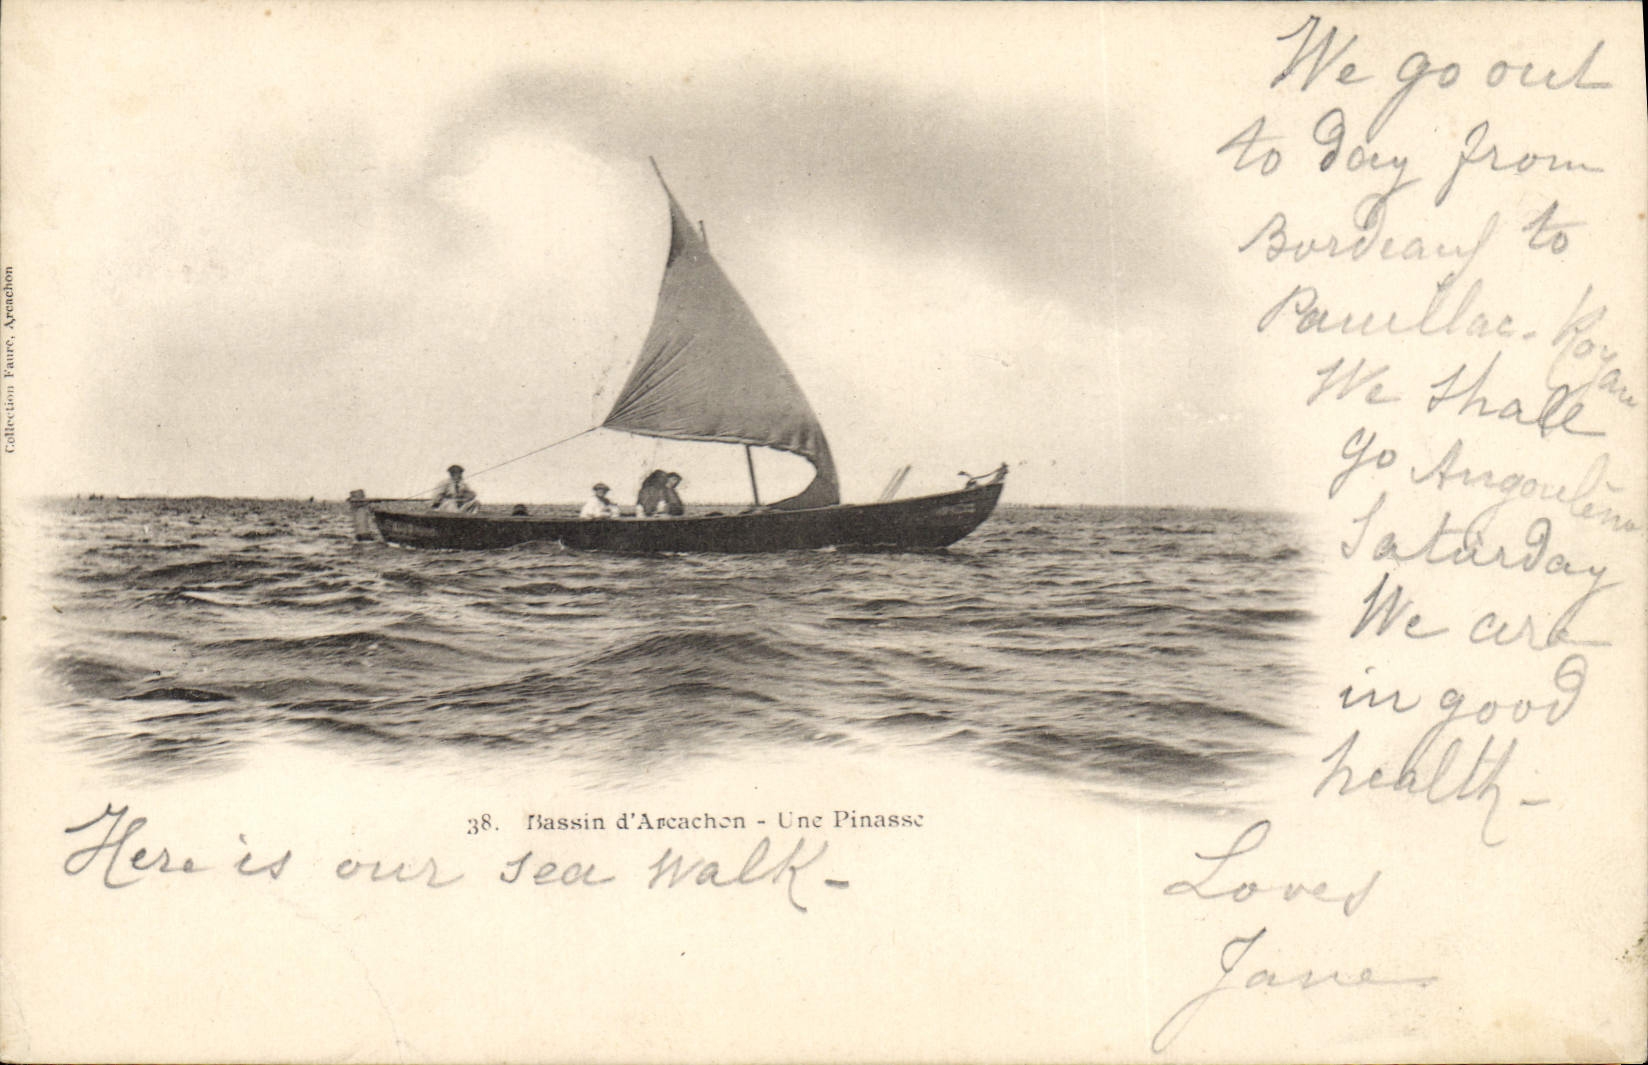 We go out
to day from
Bordeaux to
Pauillac. Royan
We shall
go Angoulême
Saturday
We are
in good
health -
Loves
Jane
38. Bassin d'Arcachon - Une Pinasse
Here is our sea walk -
Collection Faure, Arcachon